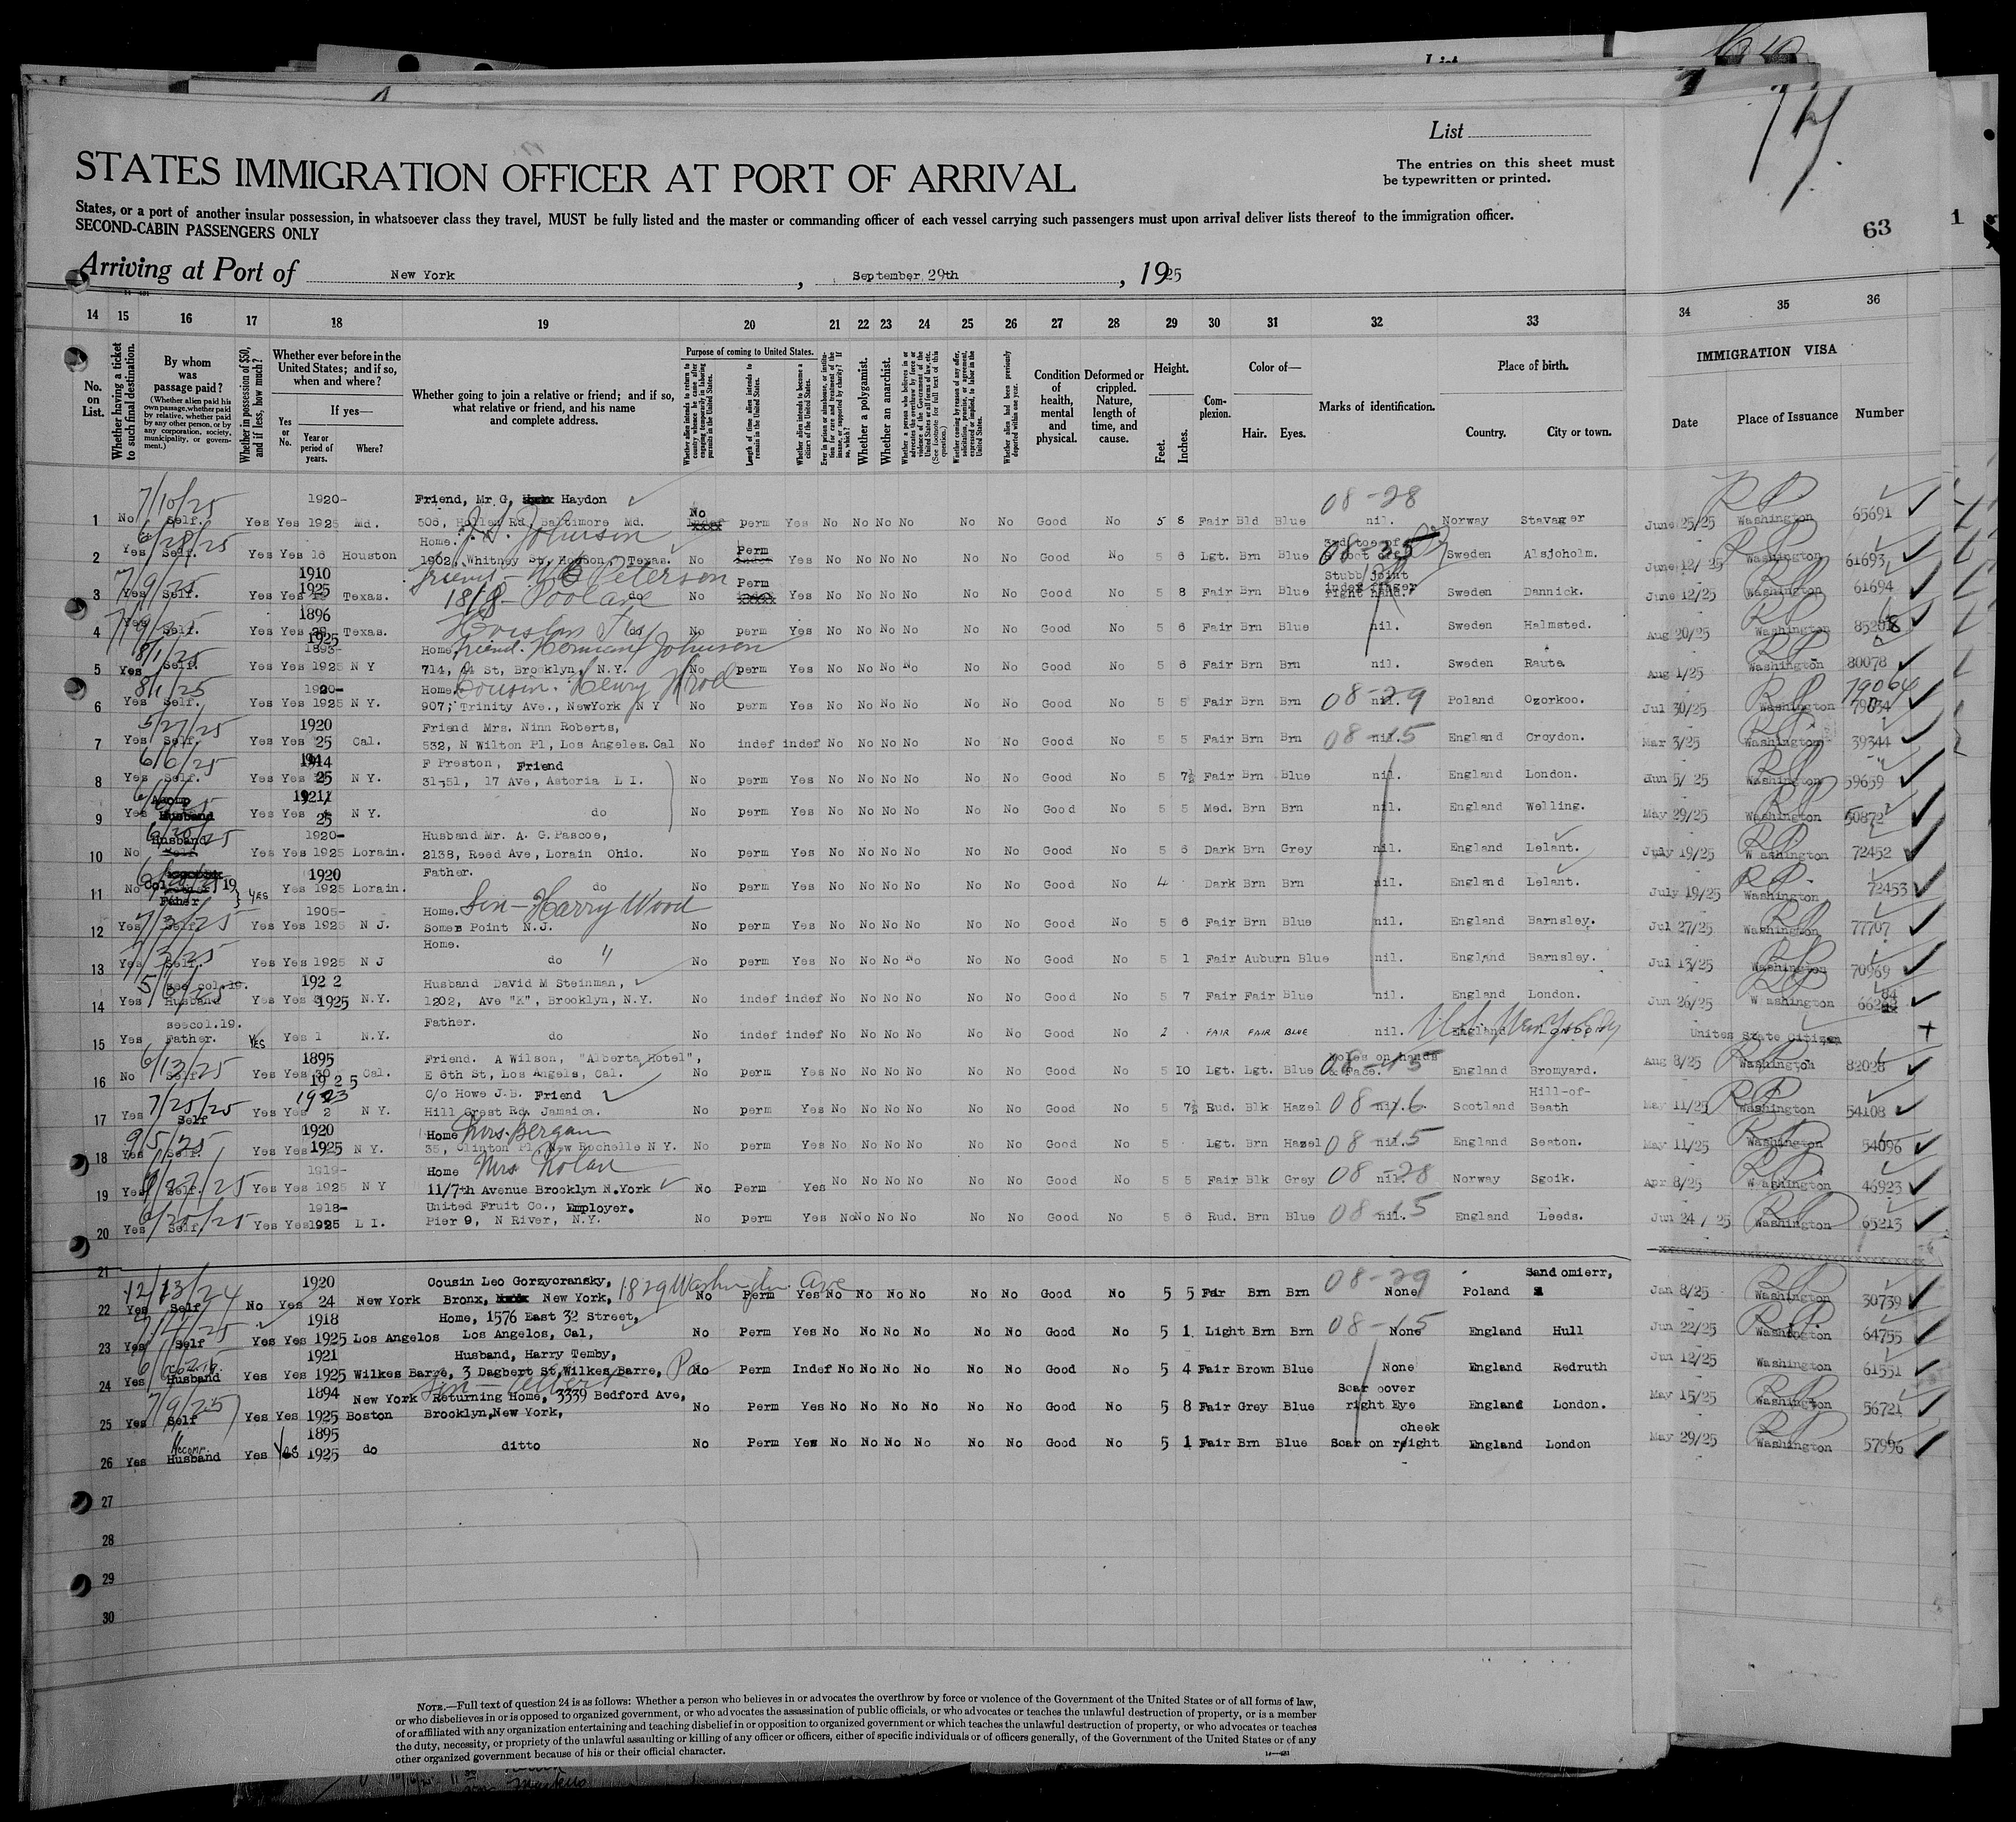 List
STATES IMMIGRATION OFFICER AT PORT OF ARRIVAL
The entries on this sheet must
be typewritten or printed.
States, or a port of another insular possession, in whatsoever class they travel, MUST be fully listed and the master or commanding officer of each vessel carrying such passengers must upon arrival deliver lists thereof to the immigration officer.
SECOND-CABIN PASSENGERS ONLY
63
1
Arriving at Port of New York, September 29th, 1925
14 15 16 17 18 19 20 21 22 23 24 25 26 27 28 29 30 31 32 33 34 35 36
No. on List.
Whether having a ticket to such final destination.
By whom was passage paid?
(Whether alien paid his own passage, whether paid by relative, whether paid by any other person, or by any corporation, society, municipality, or government.)
Whether in possession of $50, and if less, how much?
Whether ever before in the United States; and if so, when and where?
Yes or No.
If yes—
Year or period of years.
Where?
Whether going to join a relative or friend; and if so, what relative or friend, and his name and complete address.
Purpose of coming to United States.
Whether alien intends to return to country whence he came after engaging temporarily in laboring pursuits in the United States.
Length of time alien intends to remain in the United States.
Whether alien intends to become a citizen of the United States.
Ever in prison or almshouse, or institution for care and treatment of the insane, or supported by charity? If so, which?
Whether a polygamist.
Whether an anarchist.
Whether a person who believes in or advocates the overthrow by force or violence of the Government of the United States or all forms of law, etc. (See footnote for full text of this question.)
Whether coming by reason of any offer, solicitation, promise, or agreement, expressed or implied, to labor in the United States.
Whether alien had been previously deported within one year.
Condition of health, mental and physical.
Deformed or crippled. Nature, length of time, and cause.
Height.
Feet.
Inches.
Complexion.
Color of—
Hair.
Eyes.
Marks of identification.
Place of birth.
Country.
City or town.
IMMIGRATION VISA
Date
Place of Issuance
Number
7/10/25 1920- Friend, Mr G, Haydon No 08-28
1 No Self. Yes Yes 1925 Md. 506, Hollen Rd, Baltimore Md. perm Yes No No No No No No Good No 5 8 Fair Bld Blue nil. Norway Stavager June 25/25 Washington 65691
6/28/25 Home. J.A. Johnson Perm 3rd toe of 08-25
2 Yes Self. Yes Yes 16 Houston 1902, Whitney St, Houson, Texas. No Yes No No No No No No Good No 5 6 Lgt. Brn Blue Sweden Alsjoholm. June 12/25 Washington 61693
7/9/25 1910 Friend - Peterson Perm Stubb joint index finger
3 Yes Self. Yes Yes 1925 Texas. 1818 do No Yes No No No No No No Good No 5 8 Fair Brn Blue right hand. Sweden Dannick. June 12/25 Washington 61694
1896 Houston
4 Yes Self. Yes Yes 1925 Texas. do No perm Yes No No No No No No Good No 5 6 Fair Brn Blue nil. Sweden Halmsted. Aug 20/25 Washington
8/1/25 1893- Home Friend. Herman Johnson
5 Yes Self. Yes Yes 1925 N Y 714, 44 St, Brooklyn, N.Y. No perm Yes No No No No No No Good No 5 6 Fair Brn Brn nil. Sweden Rauta Aug 1/25 Washington 80078
8/1/25 1920- Home. Cousin. Henry 08-29 79064
6 Yes Self. Yes Yes 1925 N Y. 907, Trinity Ave., NewYork N Y No perm Yes No No No No No No Good No 5 5 Fair Brn Brn nil. Poland Ozorkoo. Jul 30/25 Washington
5/27/25 1920 Friend Mrs. Ninn Roberts,
7 Yes Self. Yes Yes 25 Cal. 532, N Wilton Pl, Los Angeles. Cal No indef indef No No No No No No Good No 5 5 Fair Brn Brn 08-15 nil. England Croydon. Mar 3/25 Washington 39344
6/6/25 1914 F Preston, Friend
8 Yes Self. Yes Yes 25 N Y. 3151, 17 Ave, Astoria L I. No perm Yes No No No No No No Good No 5 7½ Fair Brn Blue nil. England London. Jun 5/25 Washington 59659
Accomp 1921
9 Yes Husband Yes Yes 25 N Y. do No perm Yes No No No No No No Good No 5 5 Med. Brn Brn nil. England Welling. May 29/25 Washington 50872
6/20/25 Husband 1920- Husband Mr. A. G. Pascoe,
10 No Self Yes Yes 1925 Lorain. 2138, Reed Ave, Lorain Ohio. No perm Yes No No No No No No Good No 5 6 Dark Brn Grey nil. England Lelant. July 19/25 Washington 72452
Col. 19 1920 Father.
11 No Father YES Yes 1925 Lorain. do No perm Yes No No No No No No Good No 4 Dark Brn Brn nil. England Lelant. July 19/25 Washington 72453
7/3/25 1905- Home. Son - Harry Wood
12 Yes Self. Yes Yes 1925 N J. Somes Point N.J. No perm Yes No No No No No No Good No 5 6 Fair Brn Blue nil. England Barnsley. Jul 27/25 Washington 77707
7/3/25 Home.
13 Yes Self. Yes Yes 1925 N J do " No perm Yes No No No No No No Good No 5 1 Fair Auburn Blue nil. England Barnsley. Jul 13/25 Washington 70969
see col.19. 1922 Husband David M Steinman,
14 Yes Husband Yes Yes 1925 N.Y. 1202, Ave "K", Brooklyn, N.Y. No indef indef No No No No No No Good No 5 7 Fair Fair Blue nil. England London. Jun 26/25 Washington
seecol.19. Father.
15 Yes Father. YES Yes 1 N.Y. do No indef indef No No No No No No Good No 2 FAIR FAIR BLUE nil. England Unites State Citizen
6/13/25 1895 Friend. A Wilson, "Alberta Hotel", Moles on hands
16 No Self. Yes Yes 1925 Cal. E 6th St, Los Angels, Cal. No perm Yes No No No No No No Good No 5 10 Lgt. Lgt. Blue & Face. 08-15 England Bromyard. Aug 8/25 Washington 82028
7/25/25 1923 C/o Howe J.B. Friend Hill-of-
17 Yes Self Yes Yes 2 N Y. Hill Crest Rd, Jamaica. No perm Yes No No No No No No Good No 5 7½ Rud. Blk Hazel 08-16 nil. Scotland Beath May 11/25 Washington 54108
9/5/25 1920 Home Mrs. Bergan
18 Yes Self. Yes Yes 1925 N Y. 35, Clinton Pl, New Rochelle N Y. No perm Yes No No No No No No Good No 5 Lgt. Brn Hazel 08-15 nil. England Seaton. May 11/25 Washington 54096
1919- Home Mrs Nolan
19 Yes Self. Yes Yes 1925 N Y 11/7th Avenue Brooklyn N.York No Perm Yes No No No No No No Good No 5 5 Fair Blk Grey 08-28 nil. Norway Sgoik. Apr 8/25 Washington 46923
6/25/25 1918- United Fruit Co., Employer.
20 Yes Self. Yes Yes 1925 L I. Pier 9, N River, N.Y. No perm Yes No No No No No No Good No 5 6 Rud. Brn Blue 08-15 nil. England Leeds. Jun 24/25 Washington 65213
21
12/13/24 1920 Cousin Leo Gorzyoransky, 1829 Washington Ave 08-29 Sandomierr,
22 Yes Self No Yes 24 New York Bronx, New York, No Perm Yes No No No No No No Good No 5 5 Fair Brn Brn None Poland Jan 8/25 Washington 30739
1918 Home, 1576 East 32 Street, 08-15
23 Yes Self Yes Yes 1925 Los Angelos Los Angelos, Cal, No Perm Yes No No No No No No Good No 5 1 Light Brn Brn None England Hull Jun 22/25 Washington 64755
1921 Husband, Harry Temby,
24 Yes Husband Yes Yes 1925 Wilkes Barre, 3 Dagbert St, Wilkes Barre, Pa No Perm Indef No No No No No No Good No 5 4 Fair Brown Blue None England Redruth Jun 12/25 Washington 61551
7/9/25 1894 New York Returning Home, 3339 Bedford Ave, Scar oover
25 Yes Self Yes Yes 1925 Boston Brooklyn, New York, No Perm Yes No No No No No No Good No 5 8 Fair Grey Blue right Eye England London. May 15/25 Washington 56721
Accomp. 1895 cheek
26 Yes Husband Yes Yes 1925 do ditto No Perm Yes No No No No No No Good No 5 1 Fair Brn Blue Scar on right England London May 29/25 Washington 57996
27
28
29
30
NOTE.—Full text of question 24 is as follows: Whether a person who believes in or advocates the overthrow by force or violence of the Government of the United States or of all forms of law,
or who disbelieves in or is opposed to organized government, or who advocates the assassination of public officials, or who advocates or teaches the unlawful destruction of property, or is a member
of or affiliated with any organization entertaining and teaching disbelief in or opposition to organized government or which teaches the unlawful destruction of property, or who advocates or teaches
the duty, necessity, or propriety of the unlawful assaulting or killing of any officer or officers, either of specific individuals or of officers generally, of the Government of the United States or of any
other organized government because of his or their official character.